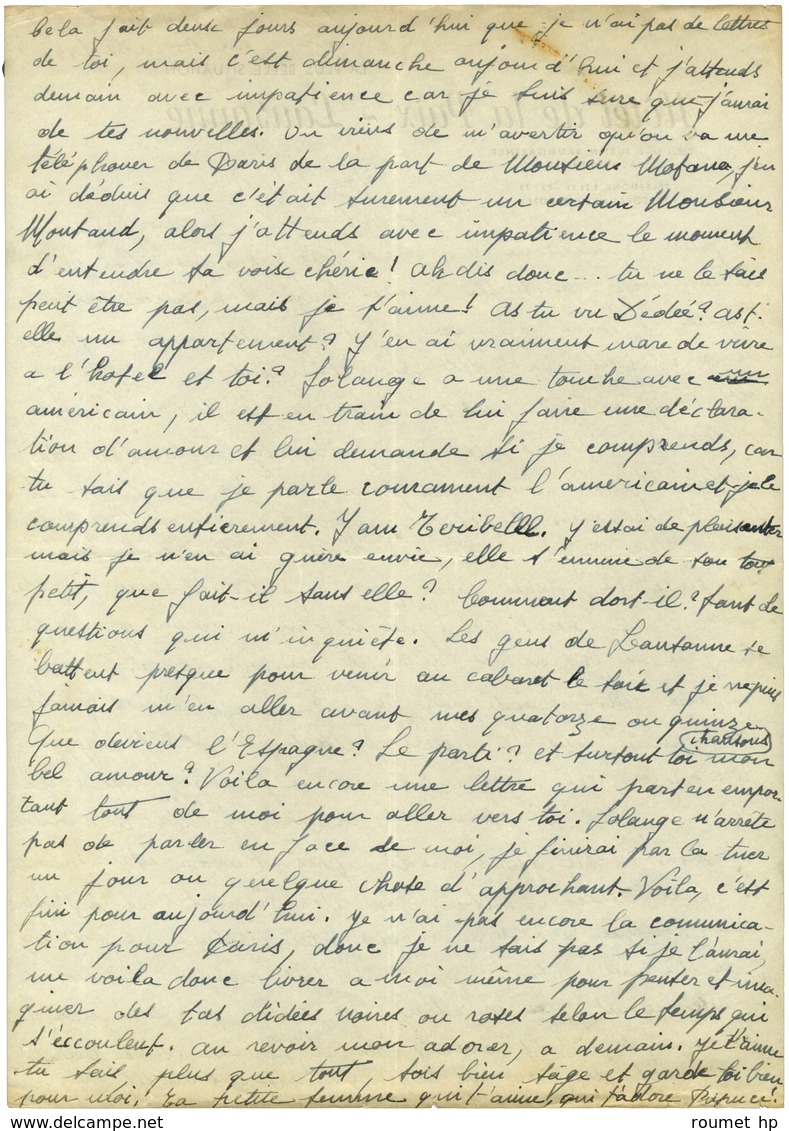 Cela fait deux jours aujourd'hui que je n'ai pas de lettres
de toi, mais c'est dimanche aujourd'hui et j'attends
demain avec impatience car je suis sure que j'aurai
de tes nouvelles. On viens de m'avertir qu'on va me
téléphoner de Paris de la part de Monsieur Mofana, j'en
ai déduis que c'était surement un certain Monsieur
Montand, alors j'attends avec impatience le moment
d'entendre ta voix chérie! Ah dis donc... tu ne le sais
peut être pas, mais je t'aime! As tu vu Dédée? ast-
elle un appartement? J'en ai vraiment mare de vivre
a l'hotel et toi? Solange a une touche avec un
américain, il est en train de lui faire une déclara-
tion d'amour et lui demande si je comprends, car
tu sais que je parle courament l'américain et je le
comprends entierement. I am Teribelll. J'essai de plaisanter
mais je n'en ai guère envie, elle s'ennuie de son tout
petit, que fait-il sans elle? Comment dort-il? Tant de
questions qui m'inquiète. Les gens de Lausanne se
battent presque pour venir au cabaret le soir et je ne puis
jamais m'en aller avant mes quatorze ou quinze
chansons
Que deviens l'Espagne? Le parti? et surtout toi mon
bel amour? Voila encore une lettre qui part en empor-
tant tout de moi pour aller vers toi. Solange n'arrète
pas de parler en face de moi, je finirai par la tuer
un jour ou quelque chose d'approchant. Voila, c'est
fini pour aujourd'hui. je n'ai pas encore la comunica-
tion pour Paris, donc je ne sais pas si je l'aurai,
me voila donc livrer a moi même pour penser et ima-
giner des tas d'idées noires ou roses selon le temps qui
s'eccoulent. au revoir mon adorer, a demain. je t'aime
tu sais plus que tout, sois bien sage et garde toi bien
pour moi. Ta petite femme qui t'aime, qui t'adore
roumet hp